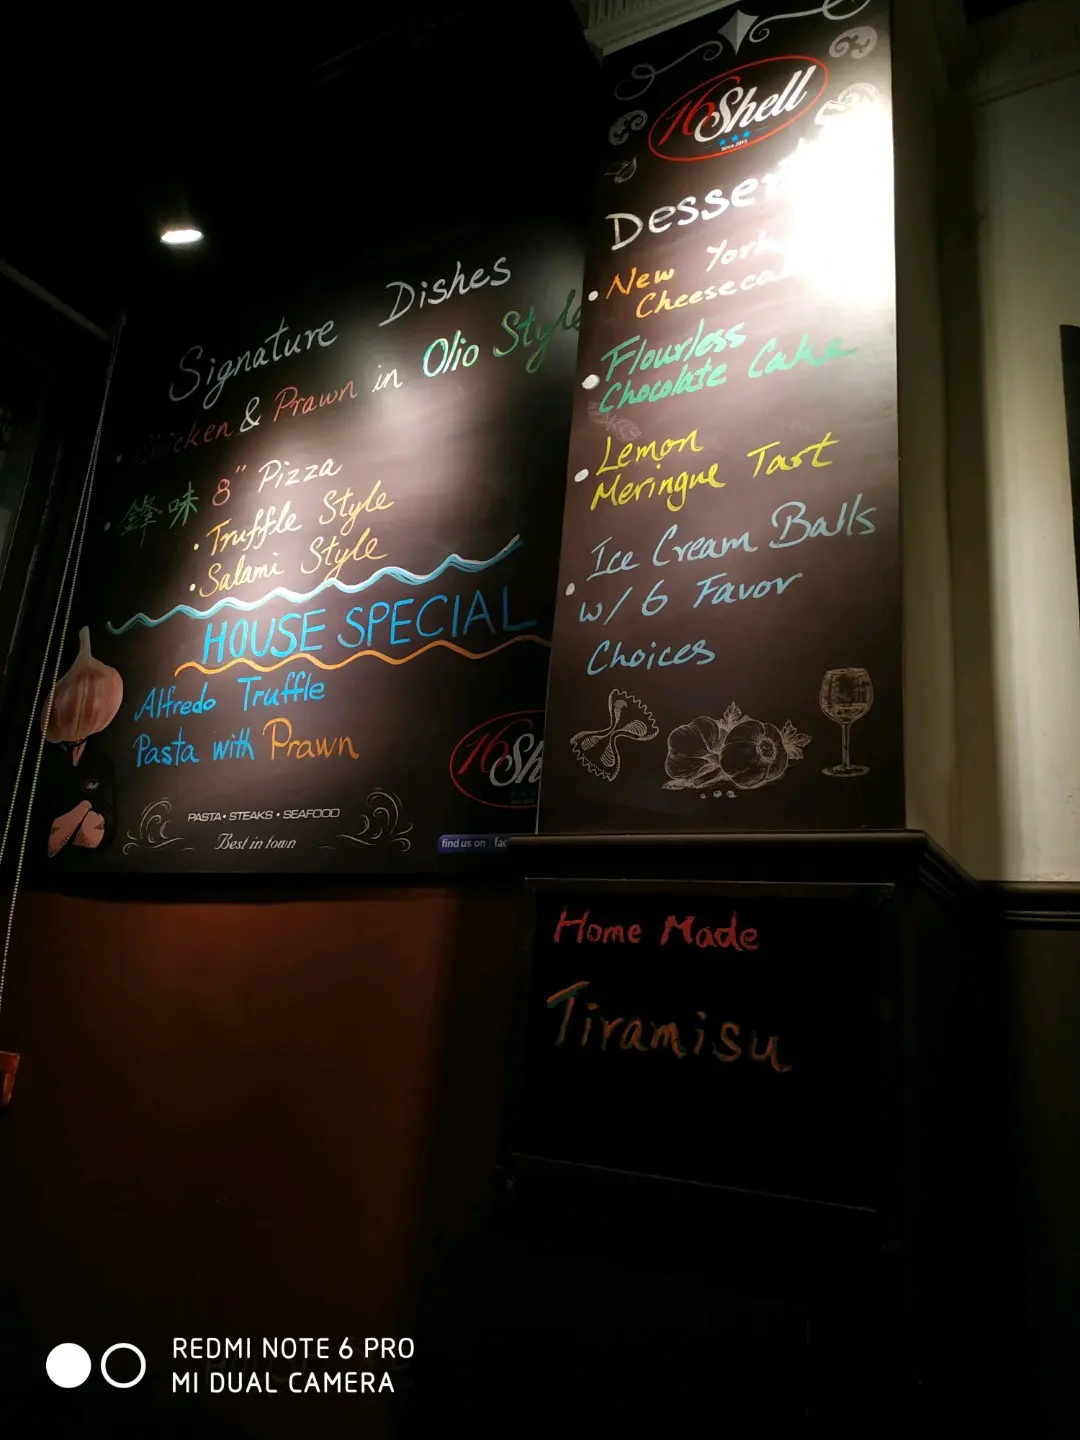 Signature Dishes
• Chicken & Prawn in Olio Style
• 鋒味 8" Pizza
• Truffle Style
• Salami Style
HOUSE SPECIAL
Alfredo Truffle
Pasta with Prawn
16 Sh
PASTA • STEAKS • SEAFOOD
Best in town
find us on fac
16 Shell
Since 2015
Dessert
• New York
Cheeseca
• Flourless
Chocolate Cake
• Lemon
Meringue Tart
• Ice Cream Balls
w/ 6 Favor
Choices
Home Made
Tiramisu
REDMI NOTE 6 PRO
MI DUAL CAMERA